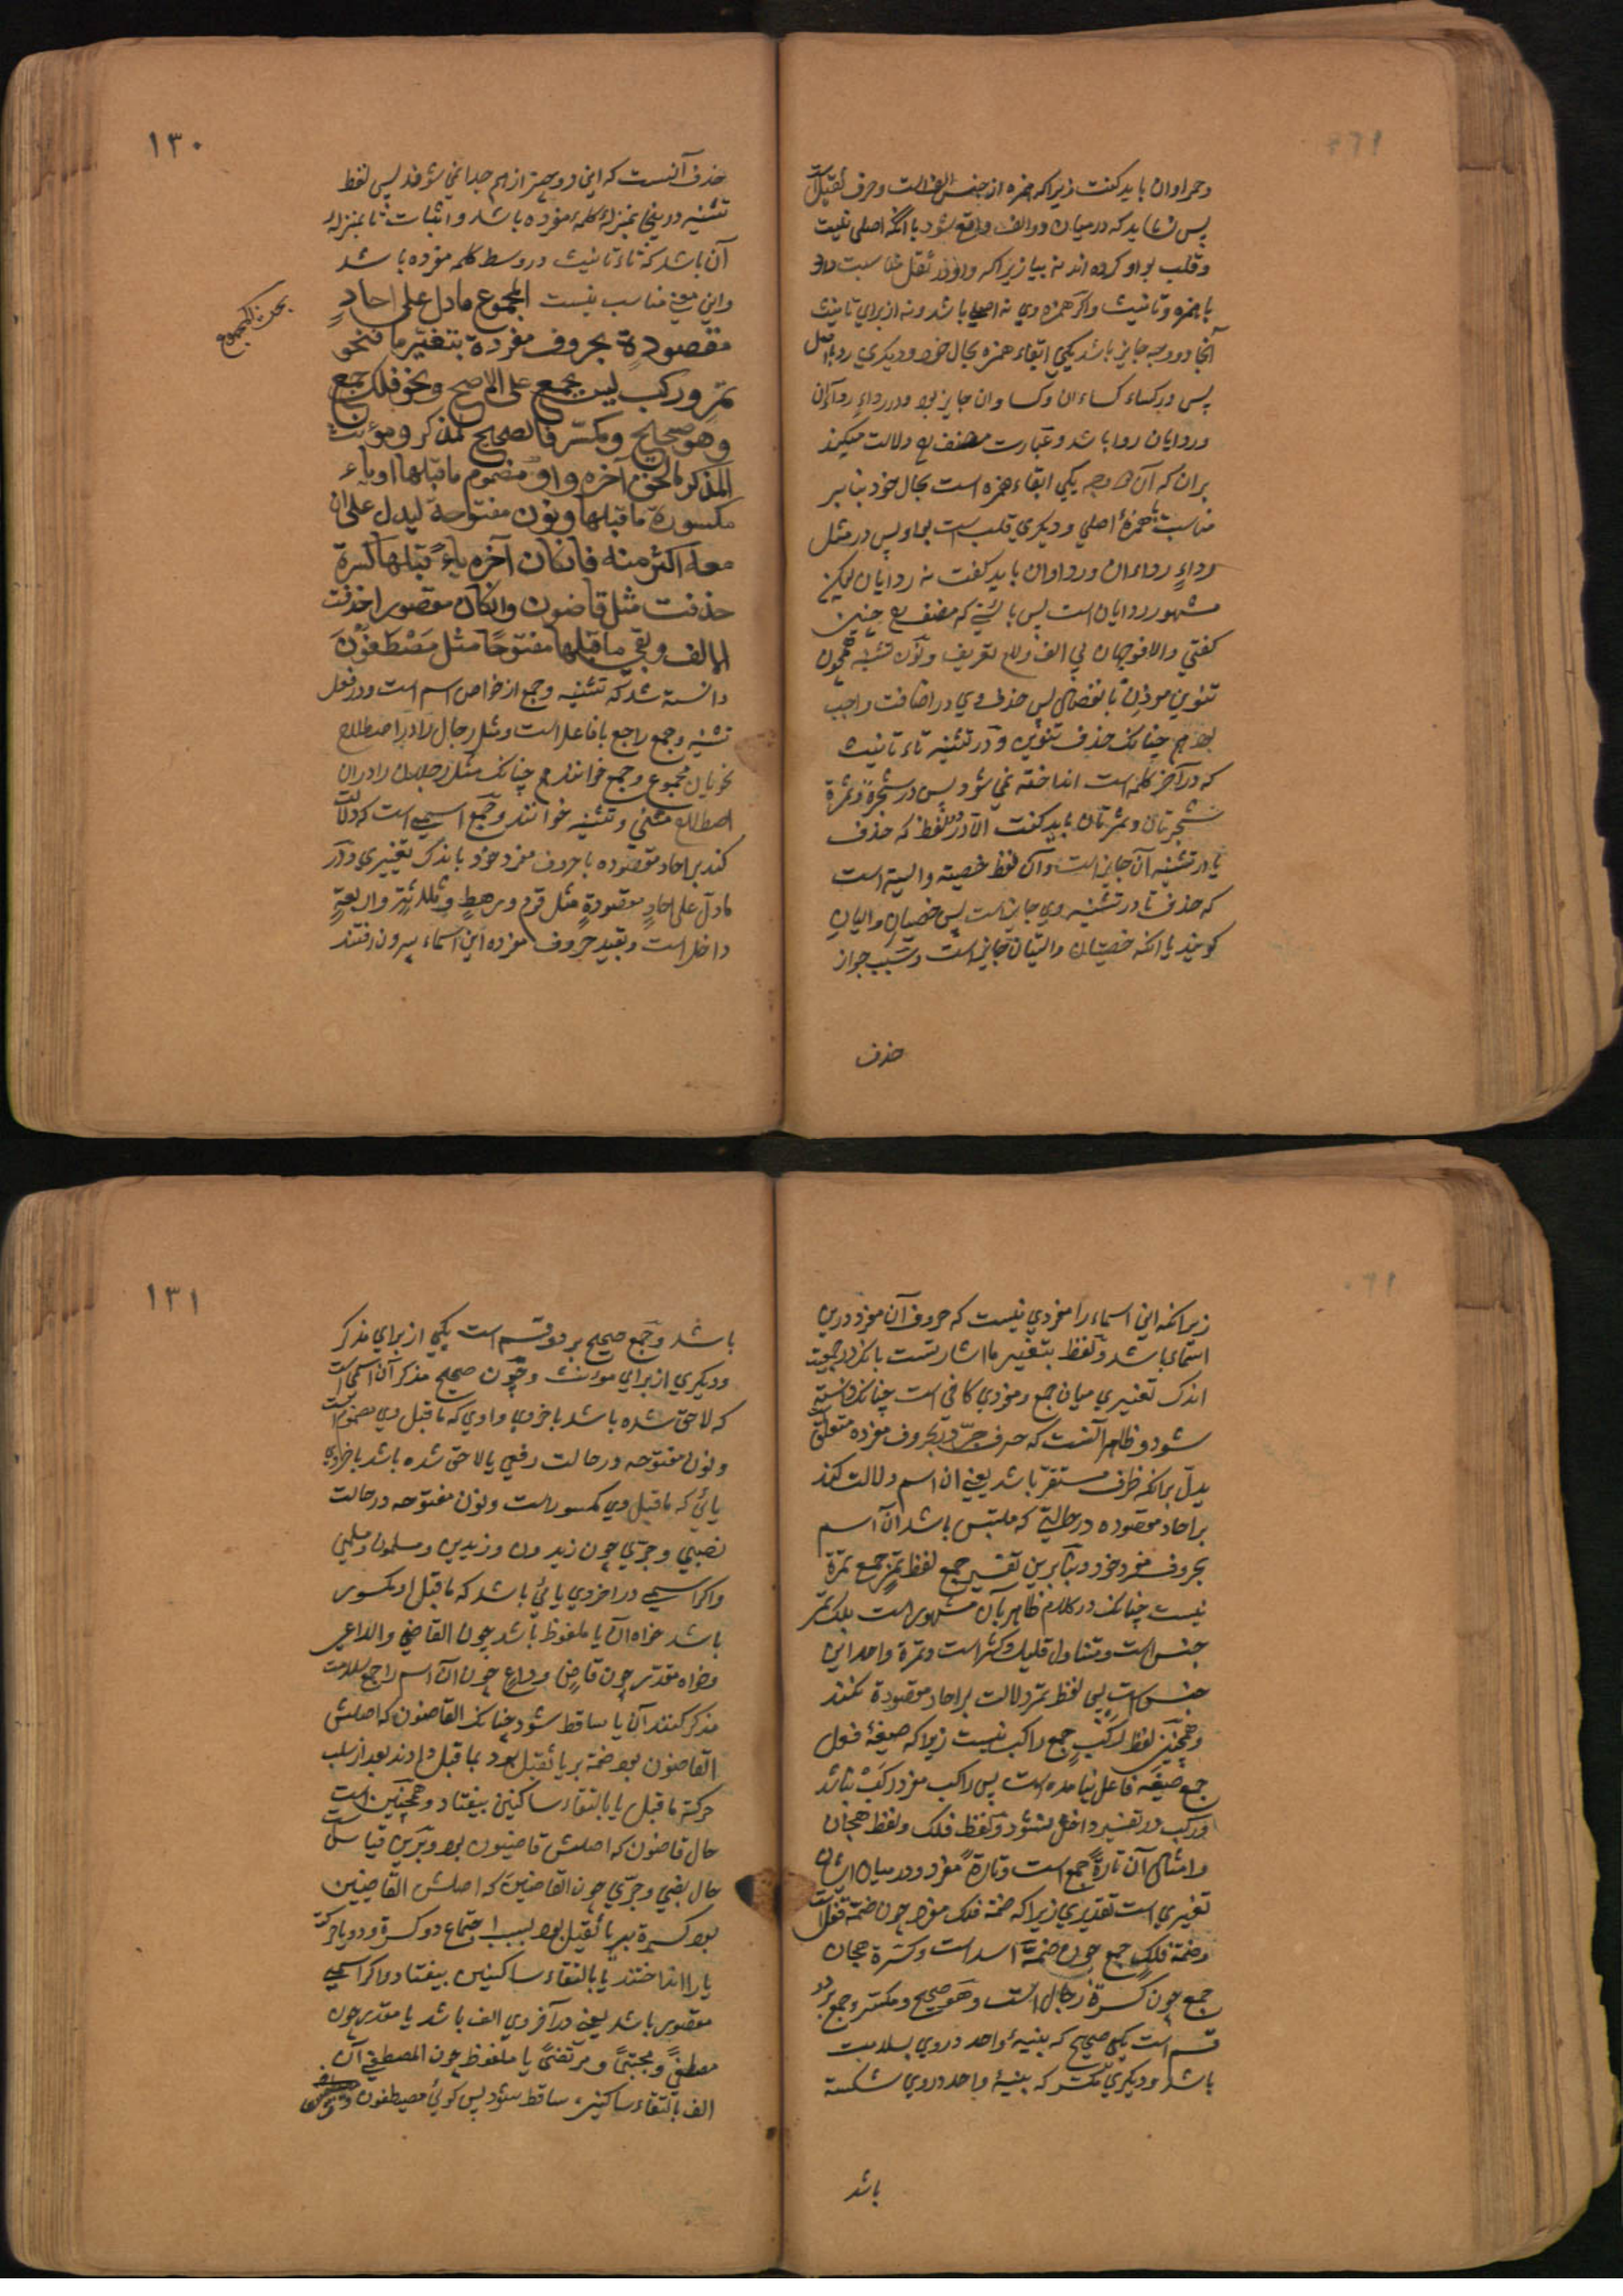 وحمراوان باید گفت زیرا که همزه از جنس الف است وحرف ثقیل است
پس نشاید که در میان دو الف واقع شود با آنکه اصلی نیست
وقلب بواو کرده اند نه بیا زیرا که واو در ثقل مناسبت دارد
با همزه وتانیث واگر همزه وی نه اصلی باشد ونه از برای تانیث
آنجا دو وجه جایز باشد یکی ابقاء همزه بحال خود ودیگری رد باصل
پس در کساء کساءان وکساوان جایز بود ودر رداءٍ رداءان
وردایان روا باشد وعبارت مصنف ع دلالت میکند
بران که آن دو وجه یکی ابقاء همزه است بحال خود بنا بر
مناسبت همزهٔ اصلی ودیگری قلب است بواو پس در مثل
رداءٍ رداءان ورداوان باید گفت نه ردایان لیکن
مشهور ردایان است پس بایستی که مصنف ع چنین
گفتی والا فوجهان بی الف ولام تعریف ونون تثنیه همچون
تنوین موذن بانفصال پس حذف وی در اضافت واجب
بود هم چنانک حذف تنوین ودر تثنیه تاء تانیث
که در آخر کلمه است انداخته نمی شود پس در شجرة وثمرة
شجرتان وثمرتان باید گفت الا در دو لفظ که حذف
تا در تثنیه آن جایز است وآن لفظ خصیة والیة است
که حذف تا در تثنیه وی جایز است پس خصیان والیان
گویند با آنکه خصیتان والیتان جایز است وسبب جواز
حذف
١٣٠
حذف آنست که این دو چیز از هم جدا نمی شوند پس لفظ
تثنیه درینجا بمنزلهٔ کلمهٔ مفرده باشد واثبات تا بمنزلهٔ
آن باشد که تاء تانیث در وسط کلمه مفرده باشد
واین معنی مناسب نیست المجموع مادل علی احادٍ
بحث المجموع
مقصودةٍ بحروف مفردة بتغیّر ما فنحو
تمرٍ ورکبٍ لیس بجمع علی الاصح ونحو فلک جمع
وهو صحیح ومکسّر فالصحیح لمذکر ومؤنث
المذکر ما لحق آخره واو مضموم ما قبلها او یاء
مکسورة ما قبلها ونون مفتوحة لیدل علی ان
معه اکثر منه فان کان آخره یاءً قبلها کسرة
حذفت مثل قاضون وان کان مقصورا حذفت
الالف وبقی ما قبلها مفتوحًا مثل مصطفَوْنَ
دانسته شد که تثنیه وجمع از خواص اسم است ودر فعل
تثنیه وجمع راجع بفاعل است ومثل رجال را در اصطلاح
نحویان مجموع وجمع خوانند هم چنانک مثل رجلان را در ان
اصطلاح مثنی وتثنیه خوانند وجمع اسمی است که دلالت
کند بر احاد مقصوده با حروف مفرد خود باندک تغییری ودر
مادل علی احادٍ مقصودةٍ مثل قوم ورهطٍ وثلثةٍ واربعةٍ
داخل است وبقید حروف مفرده این اسماء بیرون رفتند
زیرا که این اسماء را مفردی نیست که حروف آن مفرد درین
اسماء باشد ولفظ بتغییر ما اشارتست بانک در جمعیت
اندک تغییری میان جمع ومفردی کافی است چنانک دانسته
شود وظاهر آنست که حرف جرّ در بحروف مفرده متعلق
یدلّ برانکه ظرف مستقر باشد یعنی ان اسم دلالت کند
بر احاد مقصوده در حالتی که ملتبس باشد آن اسم
بحروف مفرد خود وبنا برین تفسیر جمع لفظ تمرٍ جمع تمرة
نیست چنانک در کلام ظاهر بآن مشهور است بلک تمر
جنس است ومتناول قلیل وکثیر است وتمرة واحد این
جنس است پس لفظ تمر دلالت بر احاد مقصودة نکند
وهمچنین لفظ رکبٍ جمع راکب نیست زیرا که صیغهٔ فعل
جمع صیغه فاعل نیامده است پس راکب مفرد رکب نباشد
ورکب در تفسیر داخل نشود ولفظ فلک ولفظ هجان
وامثال آن تارةً جمع است وتارةً مفرد ودر میان ایشان
تغییری است تقدیری زیرا که ضمهٔ فلک مفرد چون ضمهٔ قفل است
وضمه فلکٍ جمع چون ضمهٔ اسد است وکسرة هجان
جمع چون کسرة رجال است وهو صحیح ومکسّر وجمع بر دو
قسم است یکی صحیح که بنیهٔ واحد در وی بسلامت
باشد ودیگری مکسّر که بنیهٔ واحد در وی شکسته
باشد
١٣١
باشد وجمع صحیح بر دو قسم است یکی از برای مذکر
ودیگری از برای مونث وچون صحیح مذکر آن اسمی است
که لاحق شده باشد باخر وی واوی که ماقبل وی مضموم است
ونون مفتوحه در حالت رفعی یا لاحق شده باشد باخر وی
یائی که ماقبل وی مکسور است ونون مفتوحه در حالت
نصبی وجرّی چون زیدون وزیدین ومسلمون ومسلمین
واگر اسمی در اخر وی یائی باشد که ماقبل او مکسور
باشد خواه آن یا ملفوظ باشد چون القاضی والداعی
وخواه مقدّر چون قاضٍ وداعٍ چون آن اسم را جمع سلامت
مذکر کنند آن یا ساقط شود چنانک القاضون که اصلش
القاضیون بود ضمه بر یا ثقیل بود بما قبل دادند بعد از سلب
حرکة ماقبل یا بالتقاء ساکنین بیفتاد وهمچنین است
حال قاضون که اصلش قاضیون بود وبرین قیاس است
حال نصبی وجرّی چون القاضین که اصلش القاضیین
بود کسرة بر یا ثقیل بود بسبب اجتماع دو کسرة ودو یا حرکت
یا را انداختند یا بالتقاء ساکنین بیفتاد واگر اسمی
مقصور باشد یعنی در آخر وی الف باشد یا مقدّر چون
مصطفیً ومجتبیً ومرتضیً یا ملفوظ چون المصطفی آن
الف بالتقاء ساکنین ساقط شود پس گوئی مصطفون